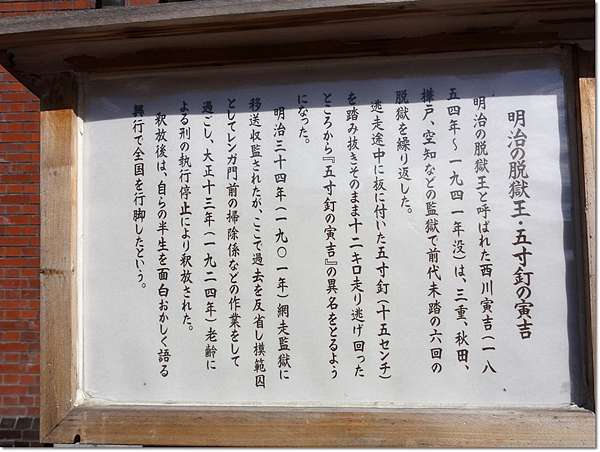 明治の脱獄王・五寸釘の寅吉
明治の脱獄王と呼ばれた西川寅吉（一八
五四年〜一九四一年没）は、三重、秋田、
樺戸、空知などの監獄で前代未踏の六回の
脱獄を繰り返した。
逃走途中に板に付いた五寸釘（十五センチ）
を踏み抜きそのまま十二キロ走り逃げ回った
ところから『五寸釘の寅吉』の異名をとるよう
になった。
明治三十四年（一九〇一年）網走監獄に
移送収監されたが、ここで過去を反省し模範囚
としてレンガ門前の掃除係などの作業をして
過ごし、大正十三年（一九二四年）老齢に
よる刑の執行停止により釈放された。
釈放後は、自らの半生を面白おかしく語る
興行で全国を行脚したという。